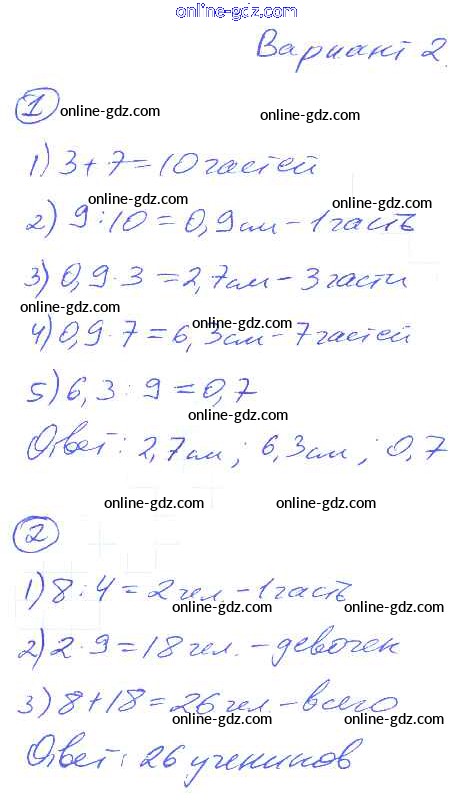 online-gdz.com online-gdz.com
Вариант 2.
1 online-gdz.com online-gdz.com
1) 3+7=10 частей
online-gdz.com online-gdz.com
2) 9:10=0,9см-1 часть
3) 0,9·3=2,7см-3 части
online-gdz.com online-gdz.com
4) 0,9·7=6,3см-7 частей
5) 6,3:9=0,7
online-gdz.com
Ответ: 2,7см; 6,3см; 0,7
online-gdz.com online-gdz.com
2
1) 8:4=2чел.-1 часть
online-gdz.com online-gdz.com
2) 2·9=18чел.-девочек
3) 8+18=26чел.-всего
online-gdz.com online-gdz.com
Ответ: 26 учеников